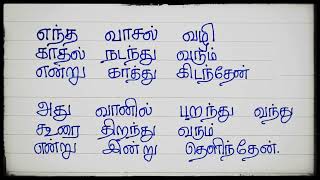 எந்த வாசல் வழி
காதல் நடந்து வரும்
என்று காத்து கிடந்தேன்
அது வானில் பறந்து வந்து
கூரை திறந்து வரும்
என்று இன்று தெளிந்தேன்.